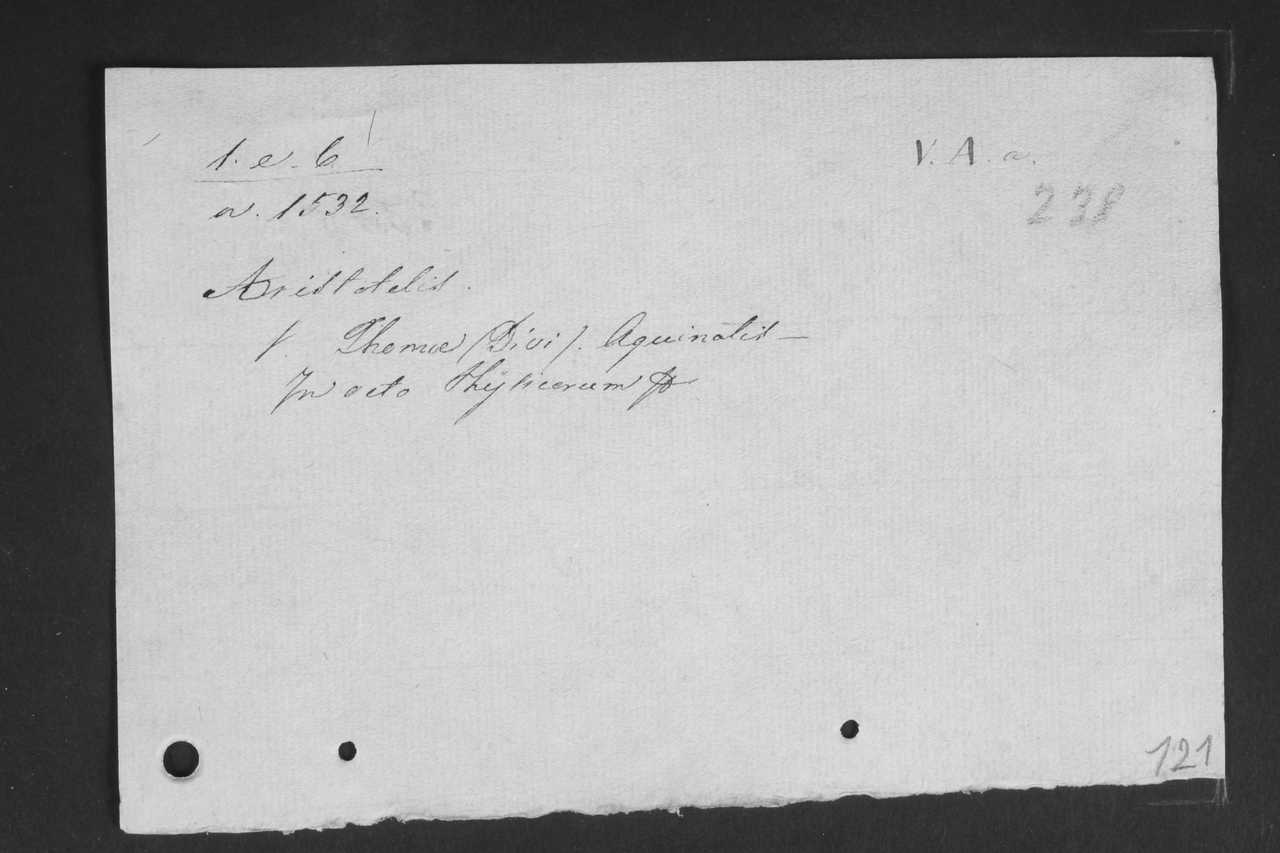 1. e. C.
V. A. a.
238
a. 1532.
Aristotelis.
f. Thomæ (Divi). Aquinatis —
In octo Physicorum
121